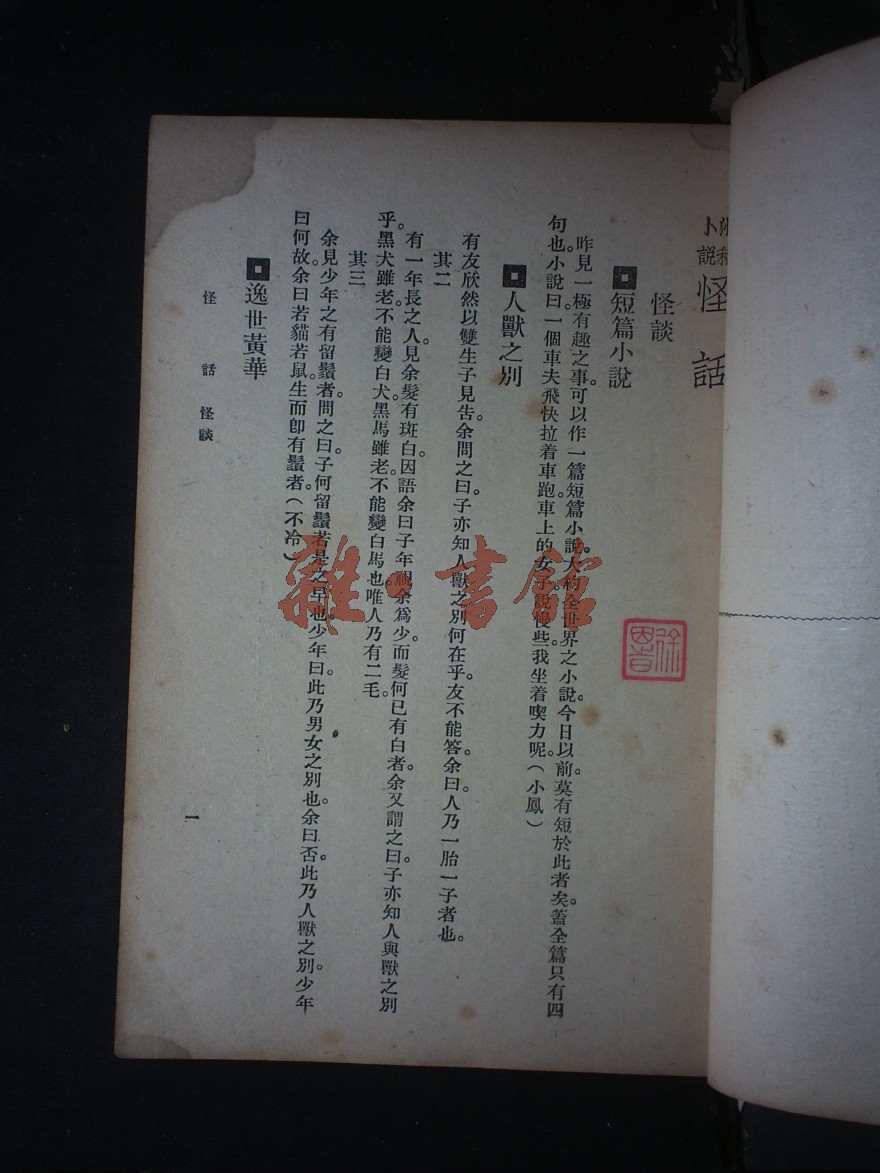 說 怪話
怪談
短篇小說
昨見一極有趣之事。可以作一篇短篇小說。大約全世界之小說。今日以前。莫有短於此者矣。蓋全篇只有四
句也。小說曰。一個車夫飛快拉着車跑。車上的女子說慢些。我坐着喫力呢。(小鳳)
人獸之別
有友欣然以雙生子見告。余問之曰。子亦知人獸之別何在乎。友不能答。余曰。人乃一胎一子者也。
其二
有一年長之人。見余髮有斑白。因語余曰。子年視余爲少。而髮何已有白者。余又謂之曰。子亦知人與獸之別
乎。黑犬雖老。不能變白犬。黑馬雖老。不能變白馬也。唯人乃有二毛。
其三
余見少年之有留鬚者。問之曰。子何留鬚若是之早也。少年曰。此乃男女之別也。余曰。否。此乃人獸之別。少年
曰。何故。余曰。若貓若鼠。生而卽有鬚者。(不冷)
逸世黃華
怪話 怪談
一
雜書館